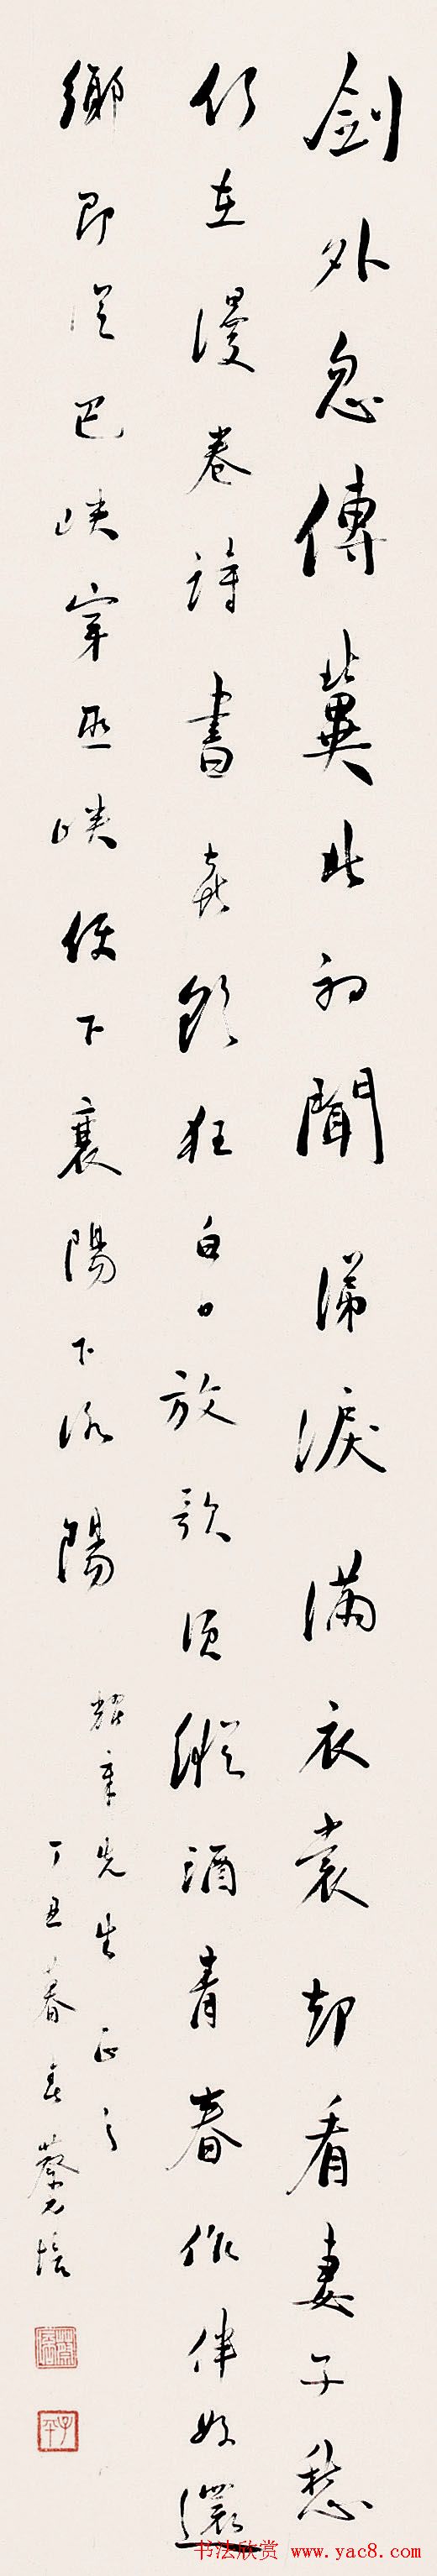 劍外忽傳冀北初聞涕淚滿衣裳却看妻子愁
何在漫卷詩書喜欲狂白日放歌須縱酒青春作伴好還
鄉即從巴峽穿巫峽便下襄陽下洛陽
耀章先生正之
丁丑暮春蔡元培
书法欣赏 www.yac8.com